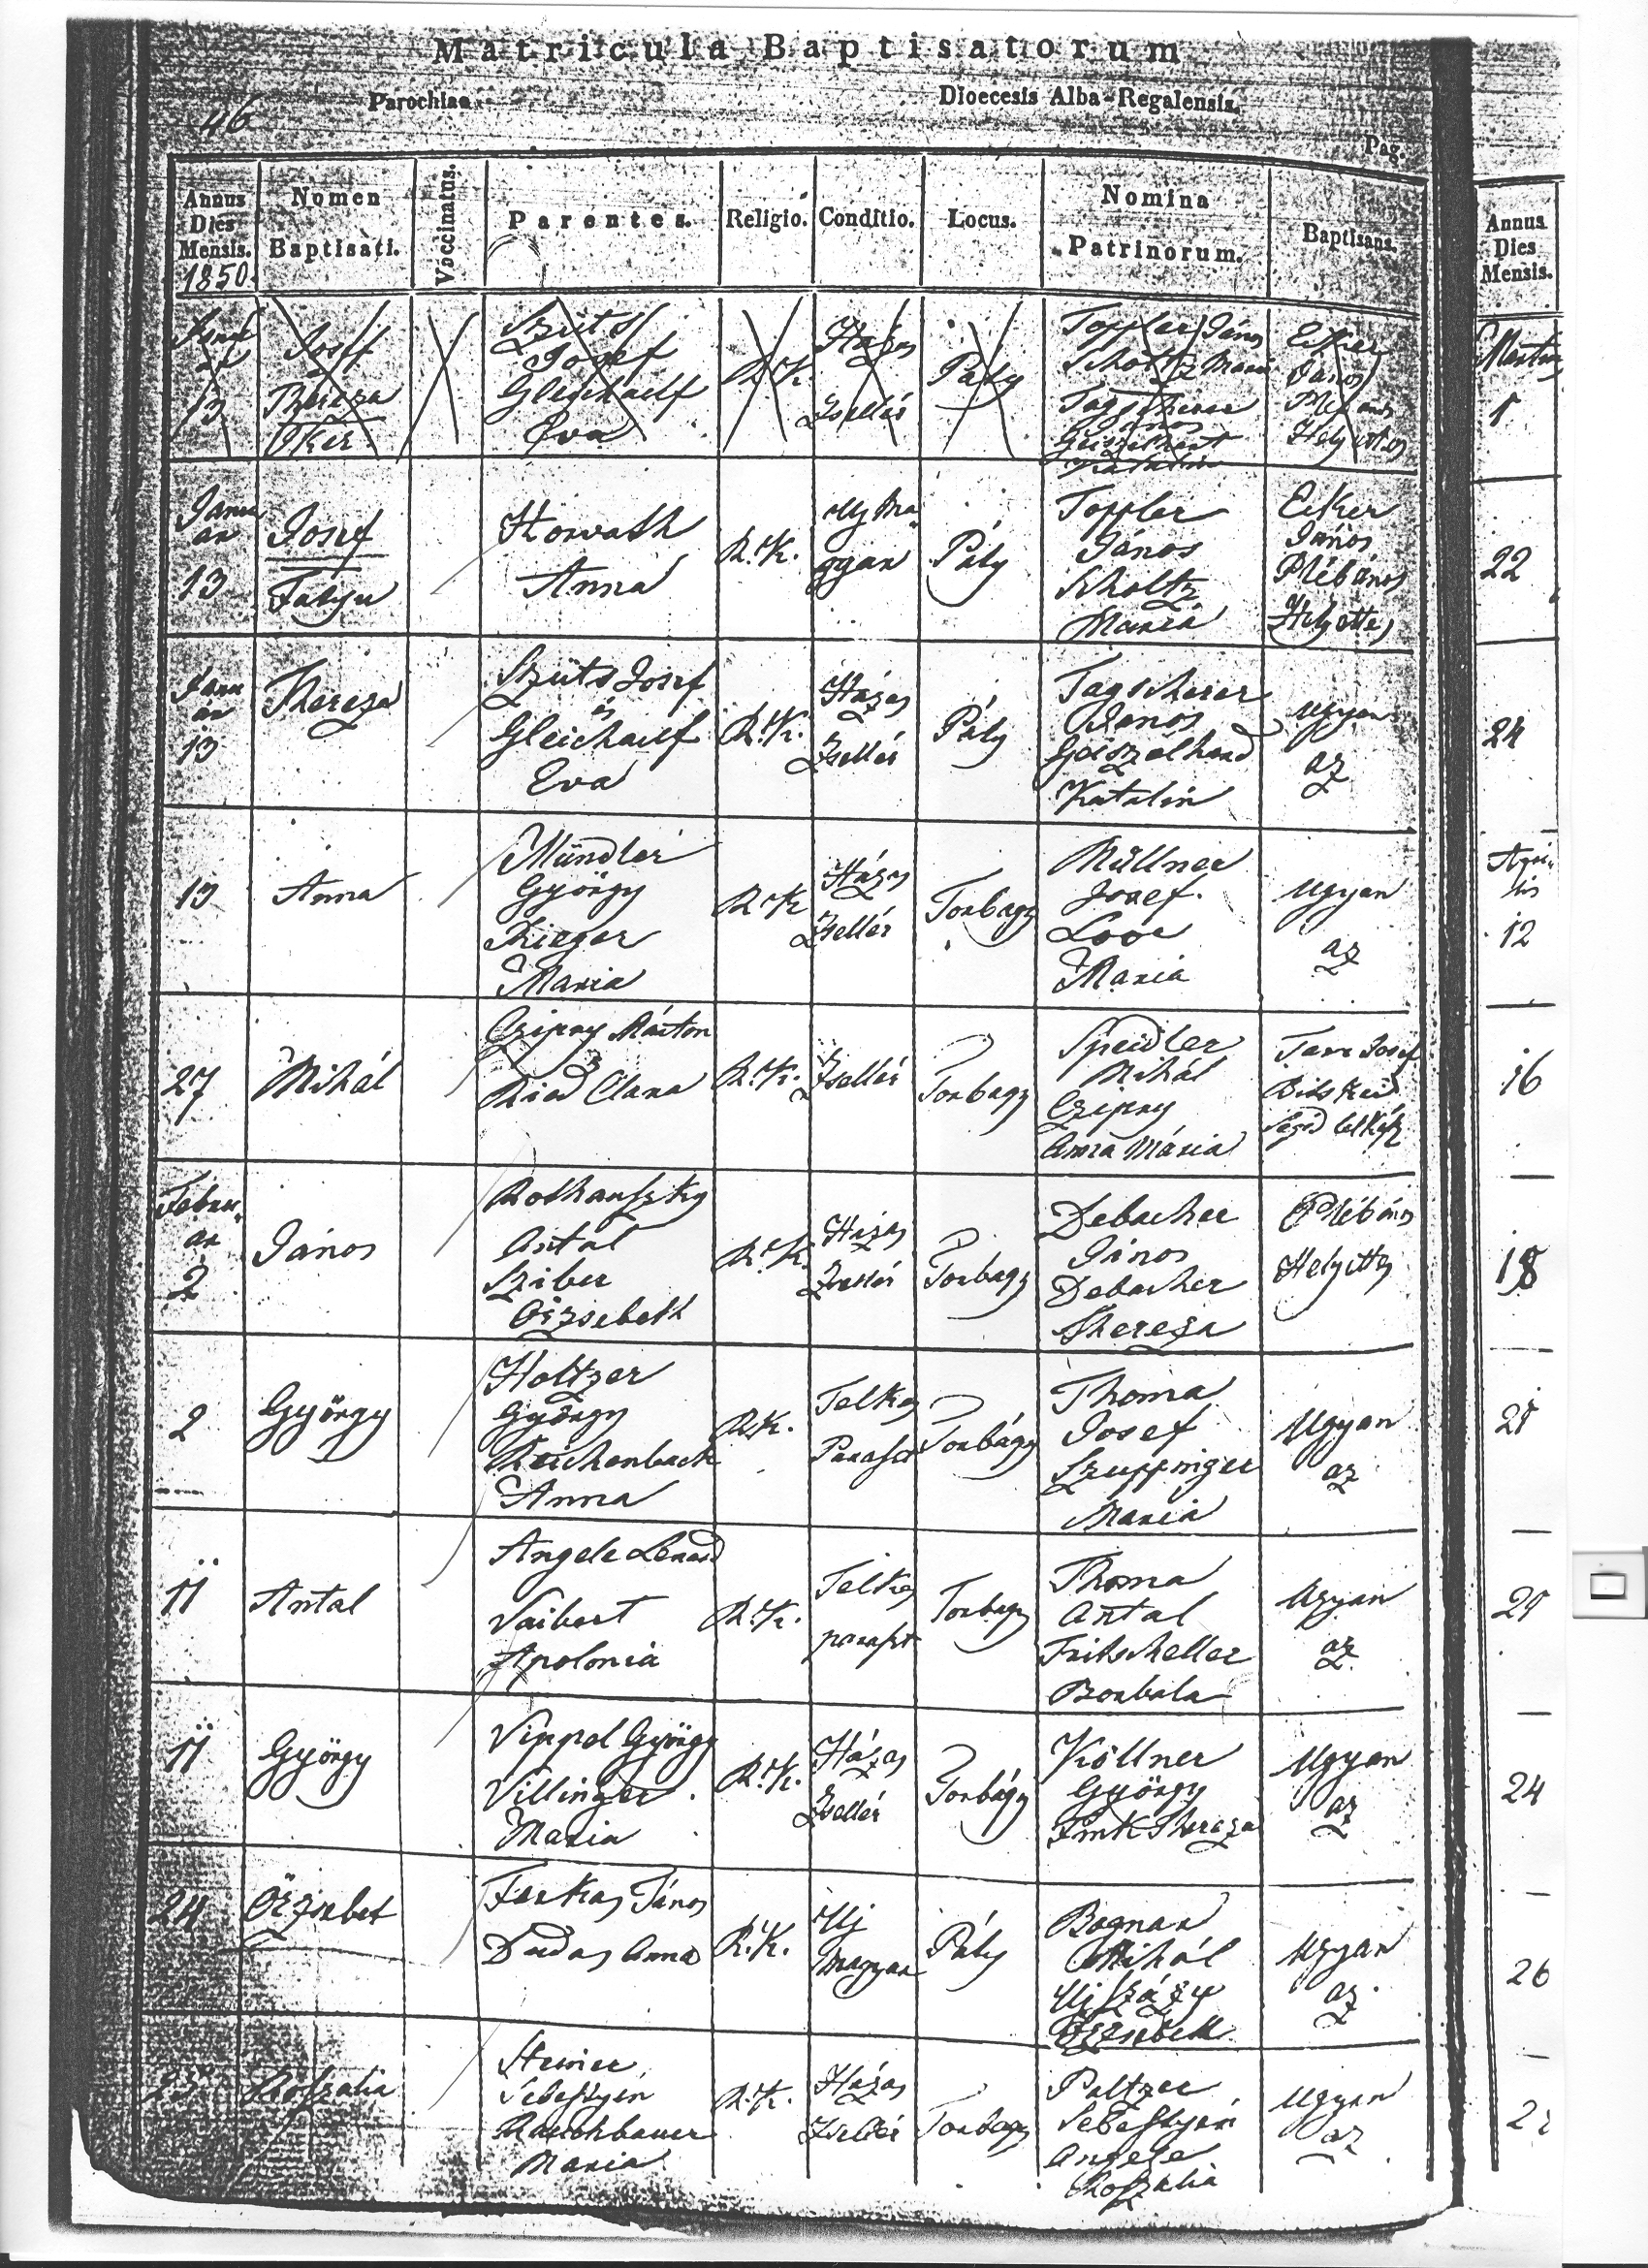 Matricula Baptisatorum
46 Parochiae Dioecesis Alba-Regalensis.
Pag.
Annus Dies Mensis. 1850.
Nomen Baptisati.
Vaccinatus.
Parentes.
Religio.
Conditio.
Locus.
Nomina Patrinorum.
Baptisans.
Annus Dies Mensis.
13
Josef
Thereza
Iker
Szüts
Josef
Gleichauf
Eva
R. K.
Házas
Zsellér
Páty
Toppler János
Scholtz Maria
Tagscherer
János
Katalin
Ecker
János
Plébános
Helyettes
Januar
13
Josef
Fattyu
Horvath
Anna
R. K.
Páty
Toppler
János
Scholtz
Maria
Ecker
János
Plébános
Helyettes
22
Januar
13
Thereza
Szüts Josef
és
Gleichauf
Eva
R. K.
Házas
Zsellér
Páty
Tagscherer
János
Katalin
Ugyan
az
24
13
Anna
Mündler
György
Rieger
Maria
R. K.
Házas
Zsellér
Torbagy
Müllner
Josef
Maria
Ugyan
az
12
27
Mihál
Czipry Márton
Ried Clara
R. K.
Zsellér
Torbagy
Speidler
Mihál
Czipry
Anna Mária
16
Februar
2
János
Antal
Sziber
Örzsebeth
R. K.
Házas
Zsellér
Torbagy
Debacher
János
Debacher
Thereza
Plébános
Helyettes
18
2
György
Holtzer
György
Reichenbach
Anna
R. K.
Telkes
Paraszt
Torbágy
Thoma
Josef
Szuppinger
Maria
Ugyan
az
11
Antal
Angele Lenard
Vaibert
Apolonia
R. K.
Telkes
paraszt
Torbagy
Thoma
Antal
Fritscheller
Borbala
Ugyan
az
11
György
Vippel György
Villinger
Maria
R. K.
Házas
Zsellér
Torbágy
Köllner
György
Fink Thereza
Ugyan
az
24
24
Örzsebet
Farkas János
Dudas Anna
R. K.
Uj
Magyar
Páty
Bognar
Mihál
Ujszászy
Örzsebeth
Ugyan
az
26
Roszalia
Sebestyén
Rauchbauer
Maria
R. K.
Házas
Zsellér
Torbagy
Paltzer
Sebestyén
Angele
Roszalia
Ugyan
az